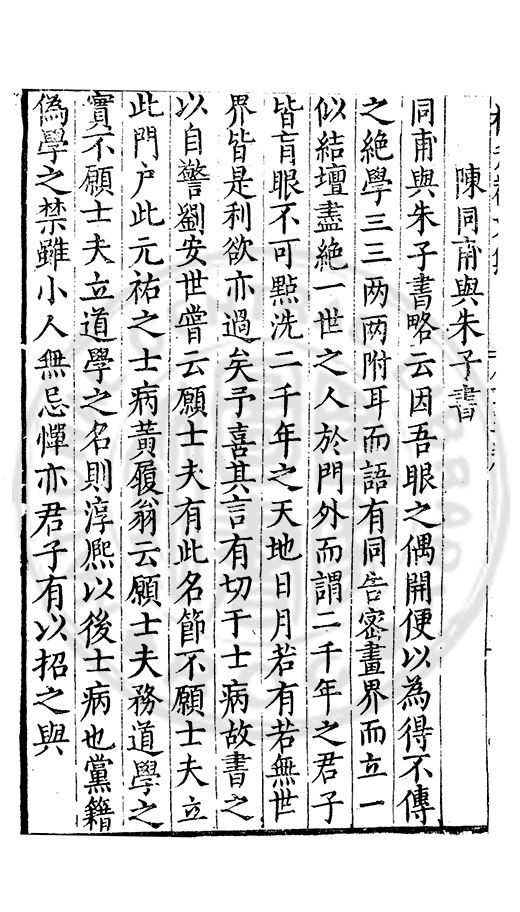 陳同甫與朱子書
同甫與朱子書略云因吾眼之偶開便以為得不傳
之絶學三三两两附耳而語有同告密畫界而立一
似結壇盡絶一世之人於門外而謂二千年之君子
皆盲眼不可點洗二千年之天地日月若有若無世
界皆是利欲亦過矣予喜其言有切于士病故書之
以自警劉安世嘗云願士夫有此名節不願士夫立
此門户此元祐之士病黃履翁云願士夫務道學之
實不願士夫立道學之名則淳熈以後士病也黨籍
偽學之禁雖小人無忌憚亦君子有以招之與